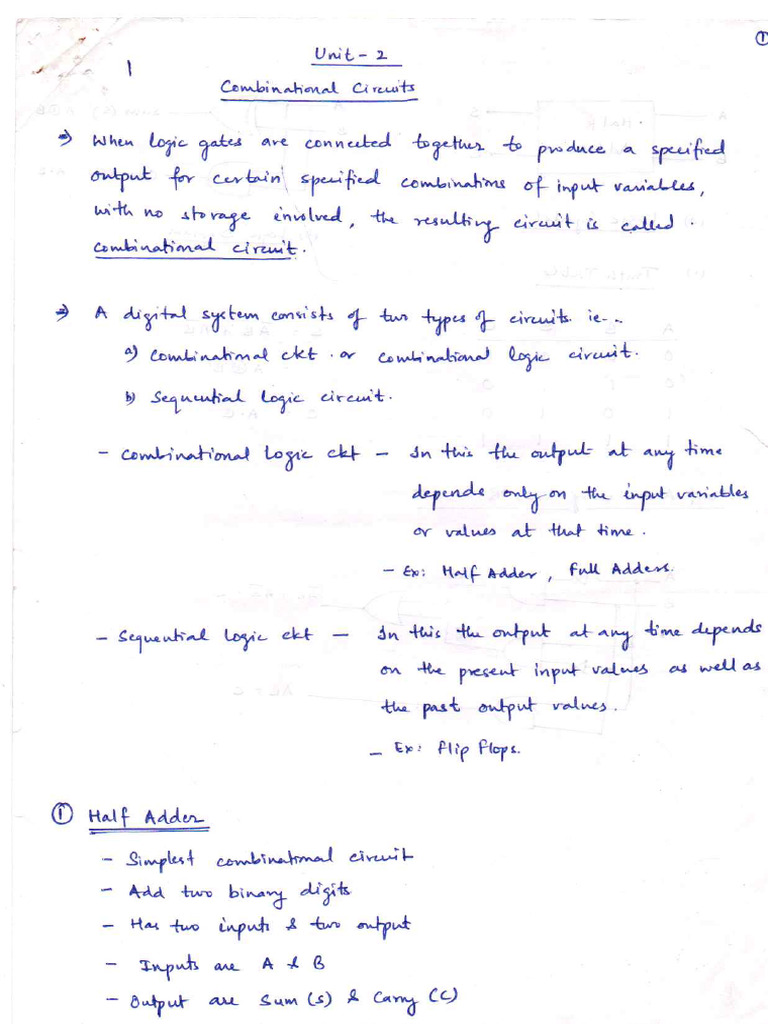 ①
Unit - 2
1
Combinational Circuits
⇒ When logic gates are connected together to produce a specified
output for certain specified combinations of input variables,
with no storage involved, the resulting circuit is called.
combinational circuit.
⇒ A digital system consists of two types of circuits. ie...
a) Combinational ckt. or combinational logic circuit.
b) Sequential logic circuit.
- Combinational Logic ckt - In this the output at any time
depends only on the input variables
or values at that time.
- Ex: Half Adder, Full Adders.
- Sequential Logic ckt - In this the output at any time depends
on the present input values as well as
the past output values.
- Ex: flip flops.
① Half Adder
- Simplest combinational circuit
- Add two binary digits
- Has two inputs & two output
- Inputs are A & B
- Output are Sum (S) & Carry (C)